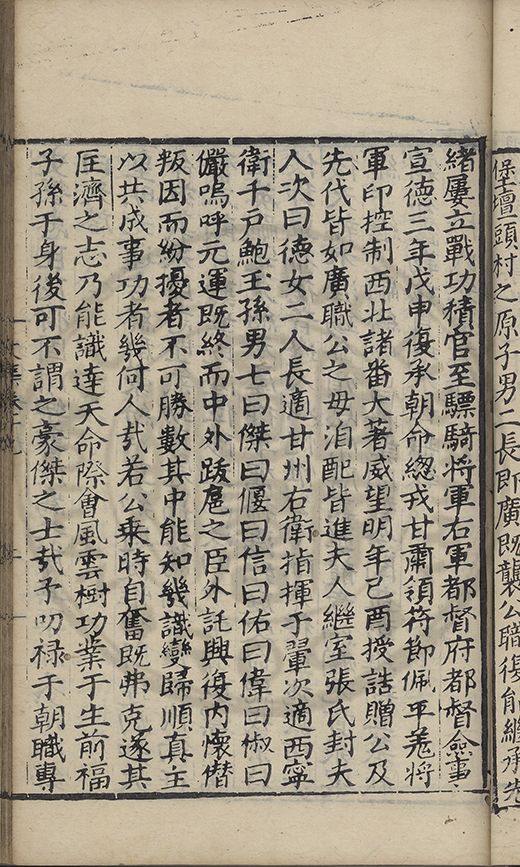 堡壇頭村之原子男二長即廣既襲公職復能繼承先
緒屢立戰功積官至驃騎將軍右軍都督府都督僉事
宣德三年戊申復承朝命總戎甘肅領符節佩平羌將
軍印控制西北諸番大著威望明年己酉授誥贈公及
先代皆如廣職公之母洎配皆進夫人繼室張氏封夫
人次曰德女二人長適甘州右衛指揮于翬次適西寧
衛千戶鮑玉孫男七曰傑曰偃曰信曰佑曰偉曰俶曰
儼嗚呼元運既終而中外跋扈之臣外託興復內懷僭
叛因而紛擾者不可勝數其中能知幾識變歸順真主
以共成事功者幾何人㢤若公乗時自奮既弗克遂其
匡濟之志乃能識達天命際會風雲樹功業于生前福
子孫于身後可不謂之豪傑之士㢤予叨禄于朝職專
文集卷十九